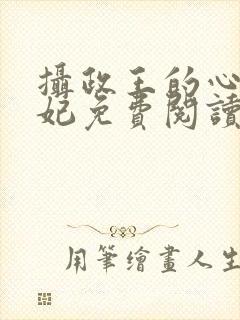 攝政王的心
妃免費閱讀
用筆繪畫人生